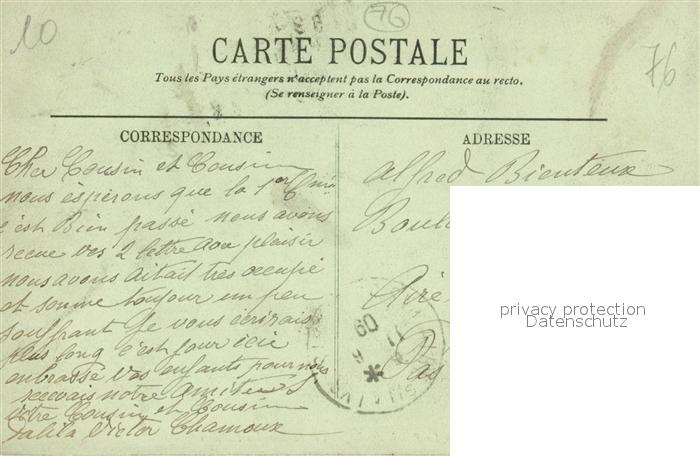 10
76
76
CARTE POSTALE
Tous les Pays étrangers n'acceptent pas la Correspondance au recto.
(Se renseigner à la Poste).
CORRESPONDANCE
Cher Cousin et Cousin
nous éspérons que la 1er
c'est Bien passé nous avons
recue vos 2 lettre avec plaisir
nous avons aitait très occupé
et somme toujour un peu
souffrant Je vous écrirais
plus long c'est jour ici
enbrassé vos enfants pour nous
recevais notre amitier
vôtre Cousin et Cousin
Dalila Victor Chamoux
ADRESSE
Alfred Bienteux
Boul
Aire
Pas
09
privacy protection
Datenschutz